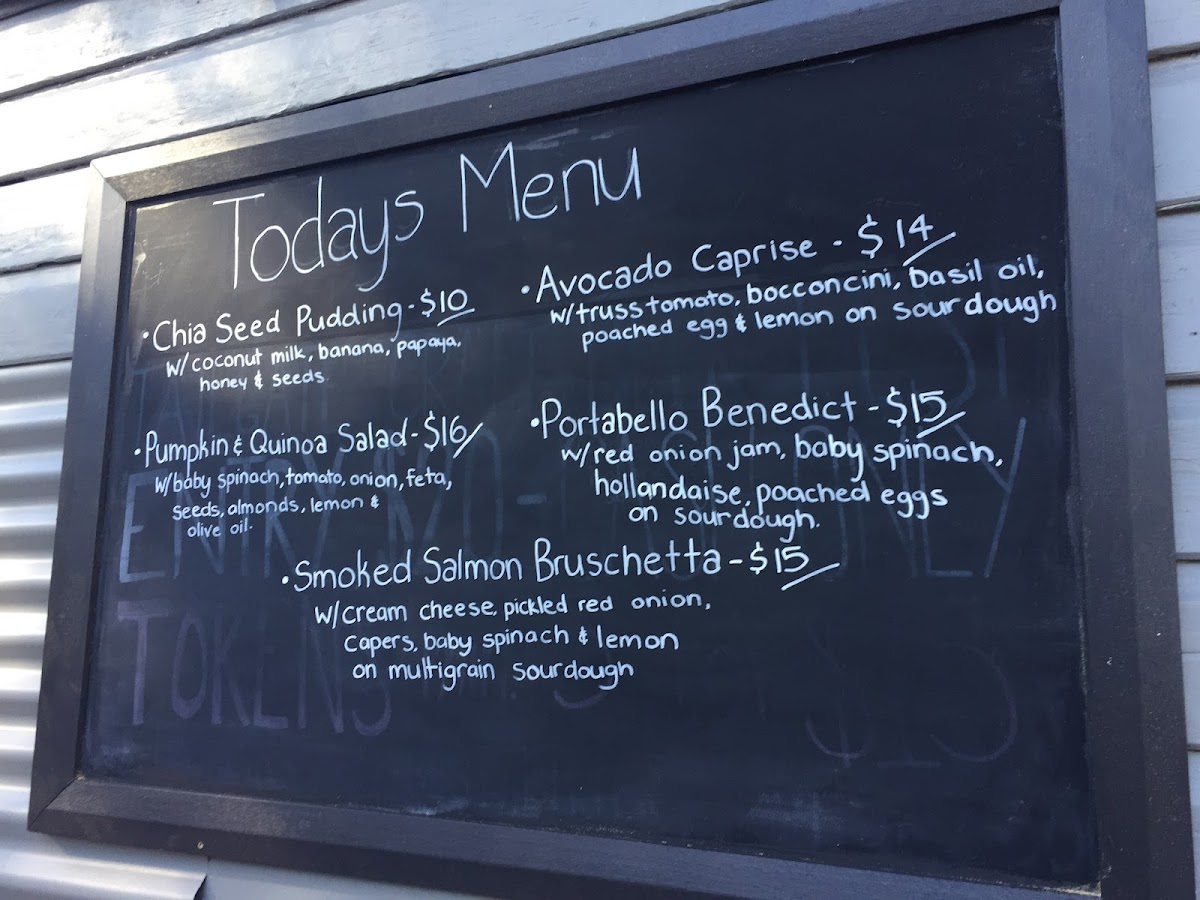 Todays Menu
• Chia Seed Pudding - $10
w/ coconut milk, banana, papaya,
honey & seeds.
• Avocado Caprise - $14
w/ truss tomato, bocconcini, basil oil,
poached egg & lemon on sourdough
• Pumpkin & Quinoa Salad - $16
w/ baby spinach, tomato, onion, feta,
seeds, almonds, lemon &
olive oil.
• Portabello Benedict - $15
w/ red onion jam, baby spinach,
hollandaise, poached eggs
on sourdough.
• Smoked Salmon Bruschetta - $15
w/ cream cheese, pickled red onion,
capers, baby spinach & lemon
on multigrain sourdough
ONLY
TOKENS
$15